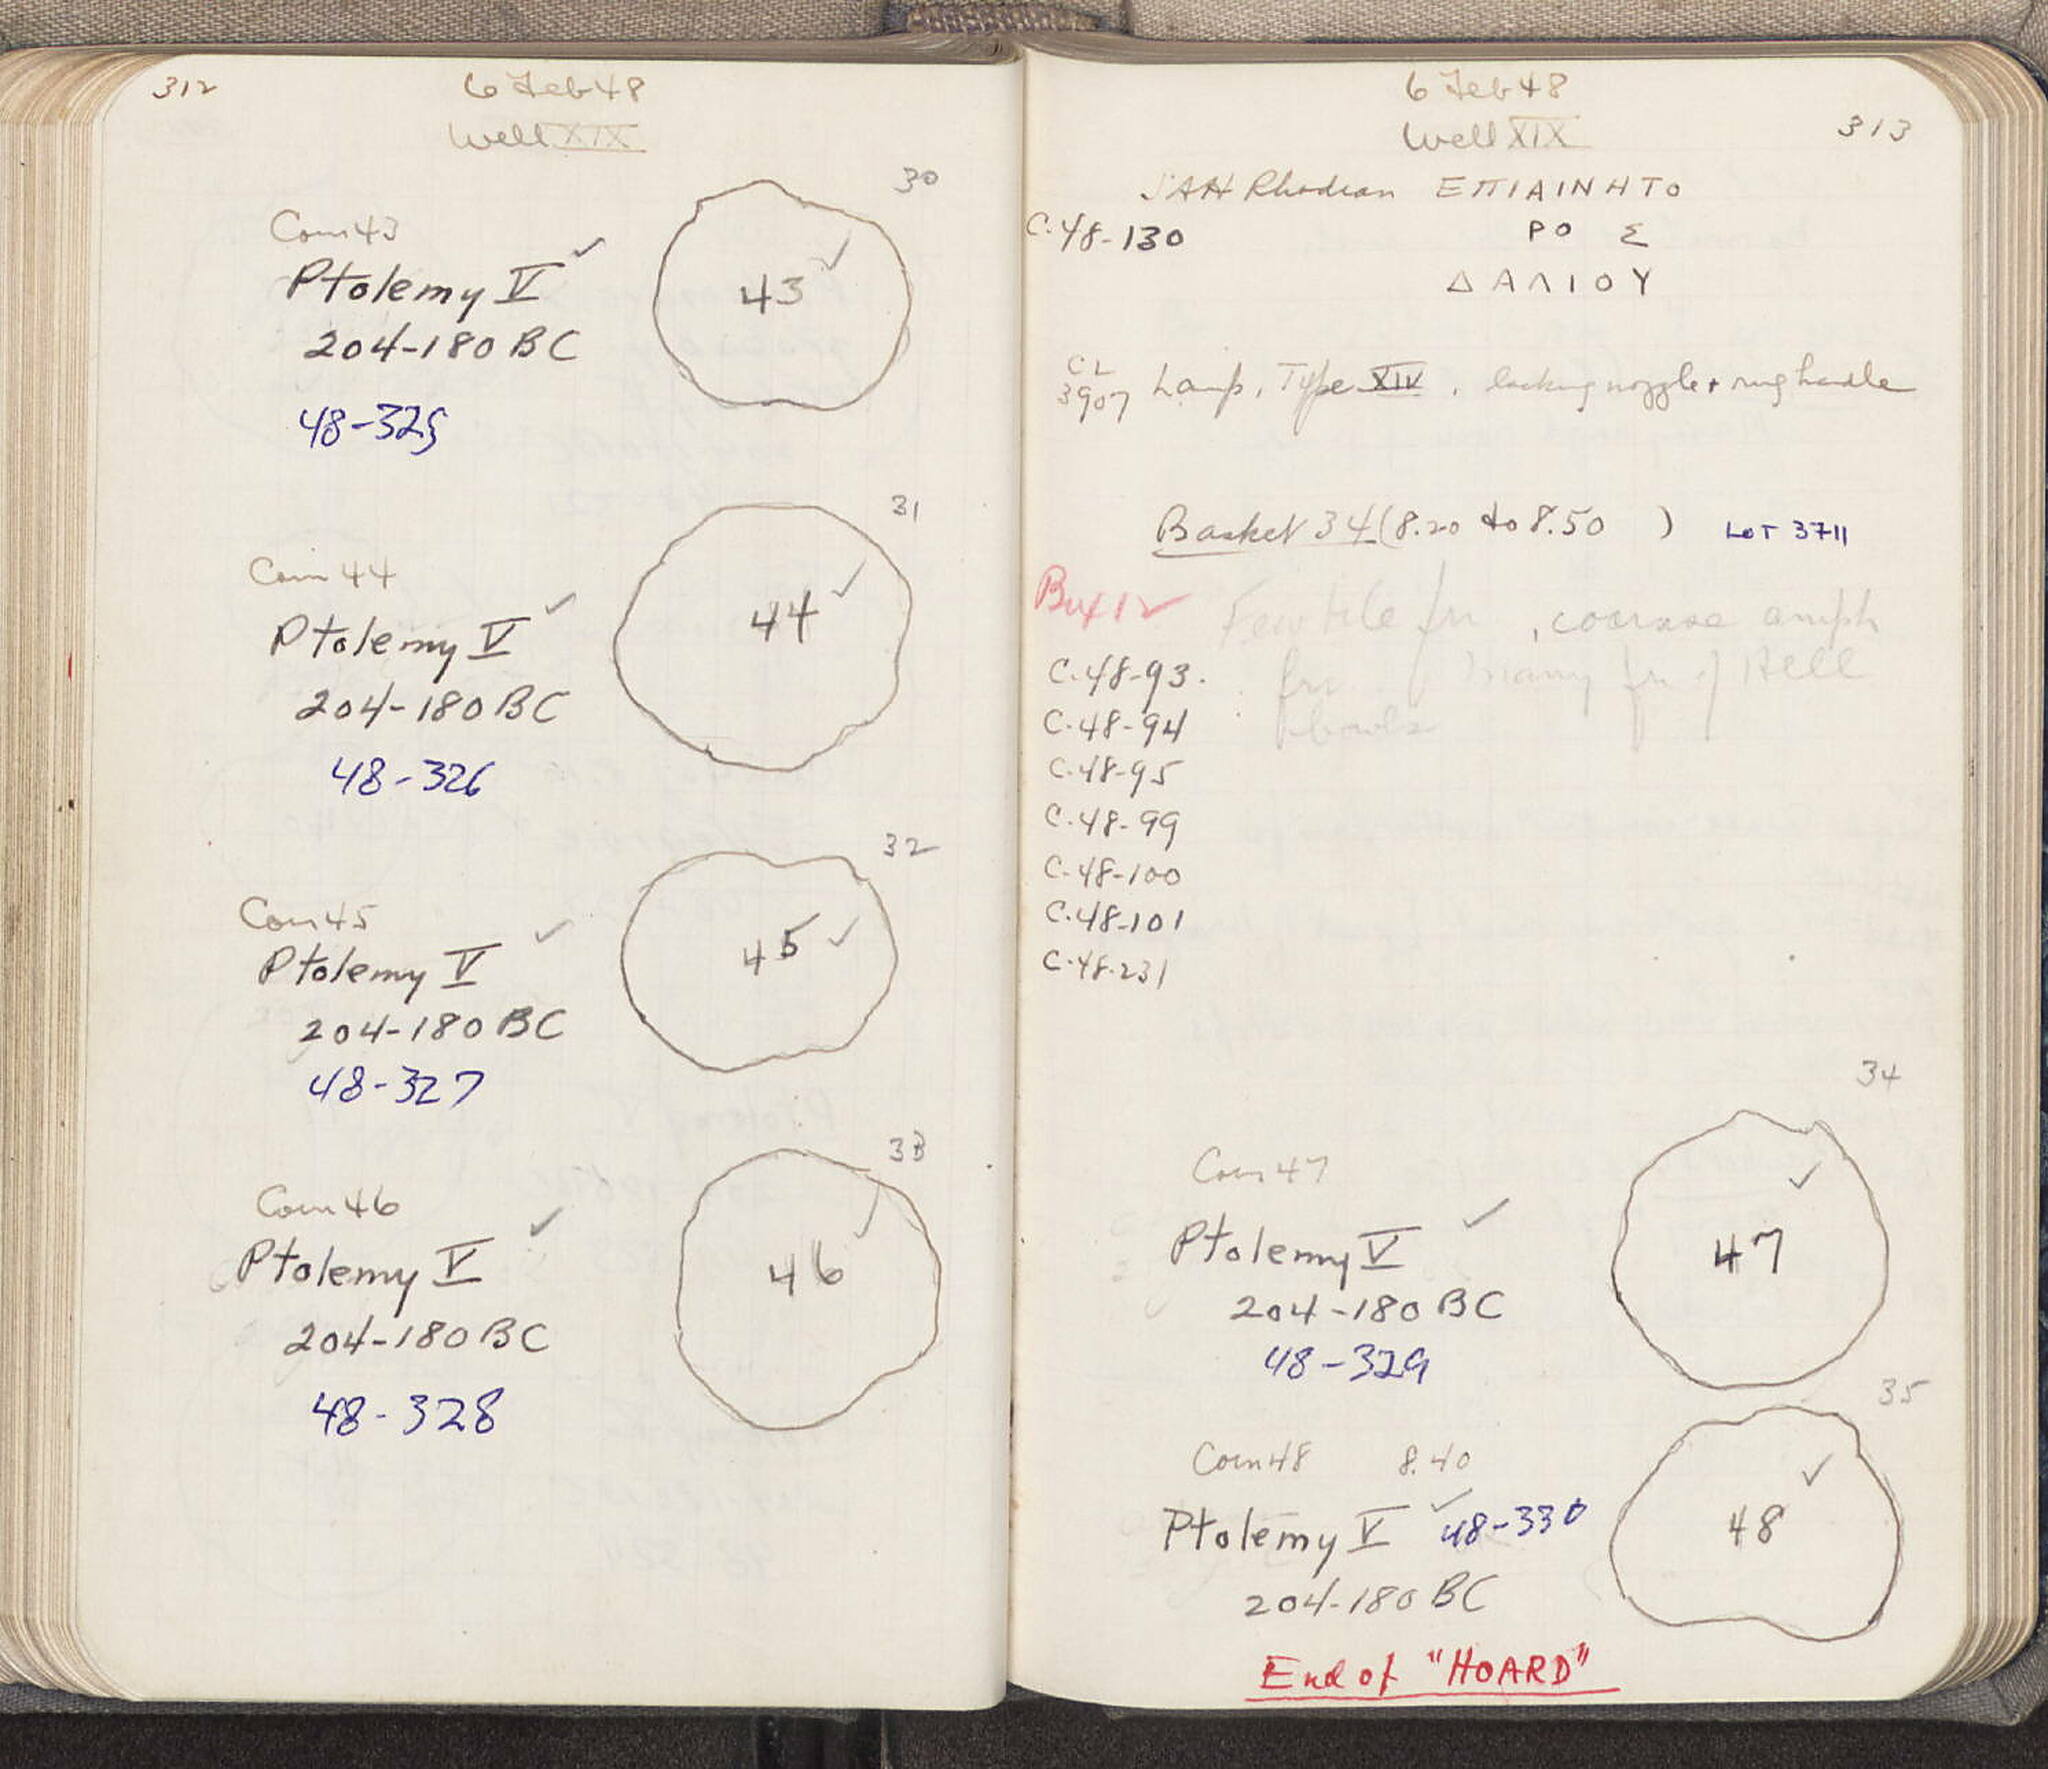 312
6 Feb 48
Well XIX
30
Coin 43
Ptolemy V ✓
204-180 BC
48-325
43 ✓
31
Coin 44
Ptolemy V ✓
204-180 BC
48-326
44 ✓
32
Coin 45
Ptolemy V ✓
204-180 BC
48-327
45 ✓
33
Coin 46
Ptolemy V ✓
204-180 BC
48-328
46 ✓
6 Feb 48
Well XIX
313
SAH Rhodian ΕΠΙΑΙΝΗΤΟ
C-48-130
ΡΟ Σ
ΔΑΛΙΟΥ
CL
3907 Lamp, Type XIV, lacking nozzle + ring handle
Basket 34 (8.20 to 8.50 ) LOT 3711
Box 12 Few tile fr , coarse amph
C-48-93. fr. Many fr of Hell
C-48-94 bowls
C-48-95
C-48-99
C-48-100
C-48-101
C-48-231
34
Coin 47
Ptolemy V ✓
204-180 BC
48-329
47 ✓
35
Coin 48 8.40
Ptolemy V ✓ 48-330
204-180 BC
48 ✓
End of "HOARD"